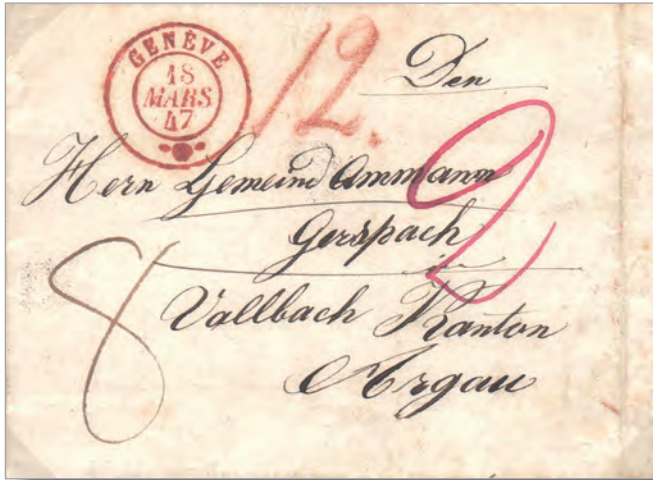 GENÈVE
18
MARS
47
12.
Den
Herrn Gemeind Ammann
Gerspach
in
Vallbach Kanton
Argau
2
8